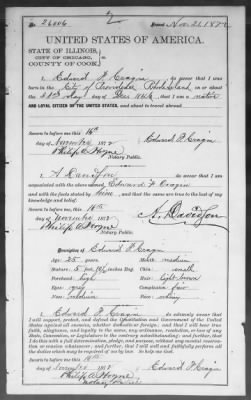 No. 26006 Issued Nov. 21. 1872
UNITED STATES OF AMERICA.
STATE OF ILLINOIS,
CITY OF CHICAGO,
COUNTY OF COOK,
I, Edward F. Cragin do swear that I was
born in the City of Providence Rhode Island on the
day of Dec. that I am a native
AND LOYAL CITIZEN OF THE UNITED STATES, and about to travel abroad.
Sworn to before me this 16th
day of November 1872 Edward F. Cragin
Philip A. Hoyne
Notary Public.
I, A Davison do swear that I am
acquainted with the above named Edward F Cragin
and with the facts stated by him, and that the same are true to the best of my
knowledge and belief.
Sworn to before me this 16th
day of November 1872 A. Davison
Philip A Hoyne
Notary Public.
Description of Edward F. Cragin
Age 25 years Mouth medium
Stature 5 feet inches Eng. Chin small
Forehead high Hair light brown
Eyes grey Complexion fair
Nose medium Face
I, Edward F. Cragin do solemnly swear that
I will support, protect, and defend the Constitution and Government of the United
States against all enemies, whether domestic or foreign; and that I will bear true
faith, allegiance, and loyalty to the same, any ordinance, resolution, or law of any
State, Convention, or Legislature to the contrary notwithstanding; and further, that
I do this with a full determination, pledge, and purpose, without any mental reser-
vation or evasion whatsoever; and further, that I will well and faithfully perform all
the duties which may be required of me by law. So help me God.
Sworn to before me this 16th
day of November 1872 Edward F Cragin
Philip A Hoyne
Notary Public